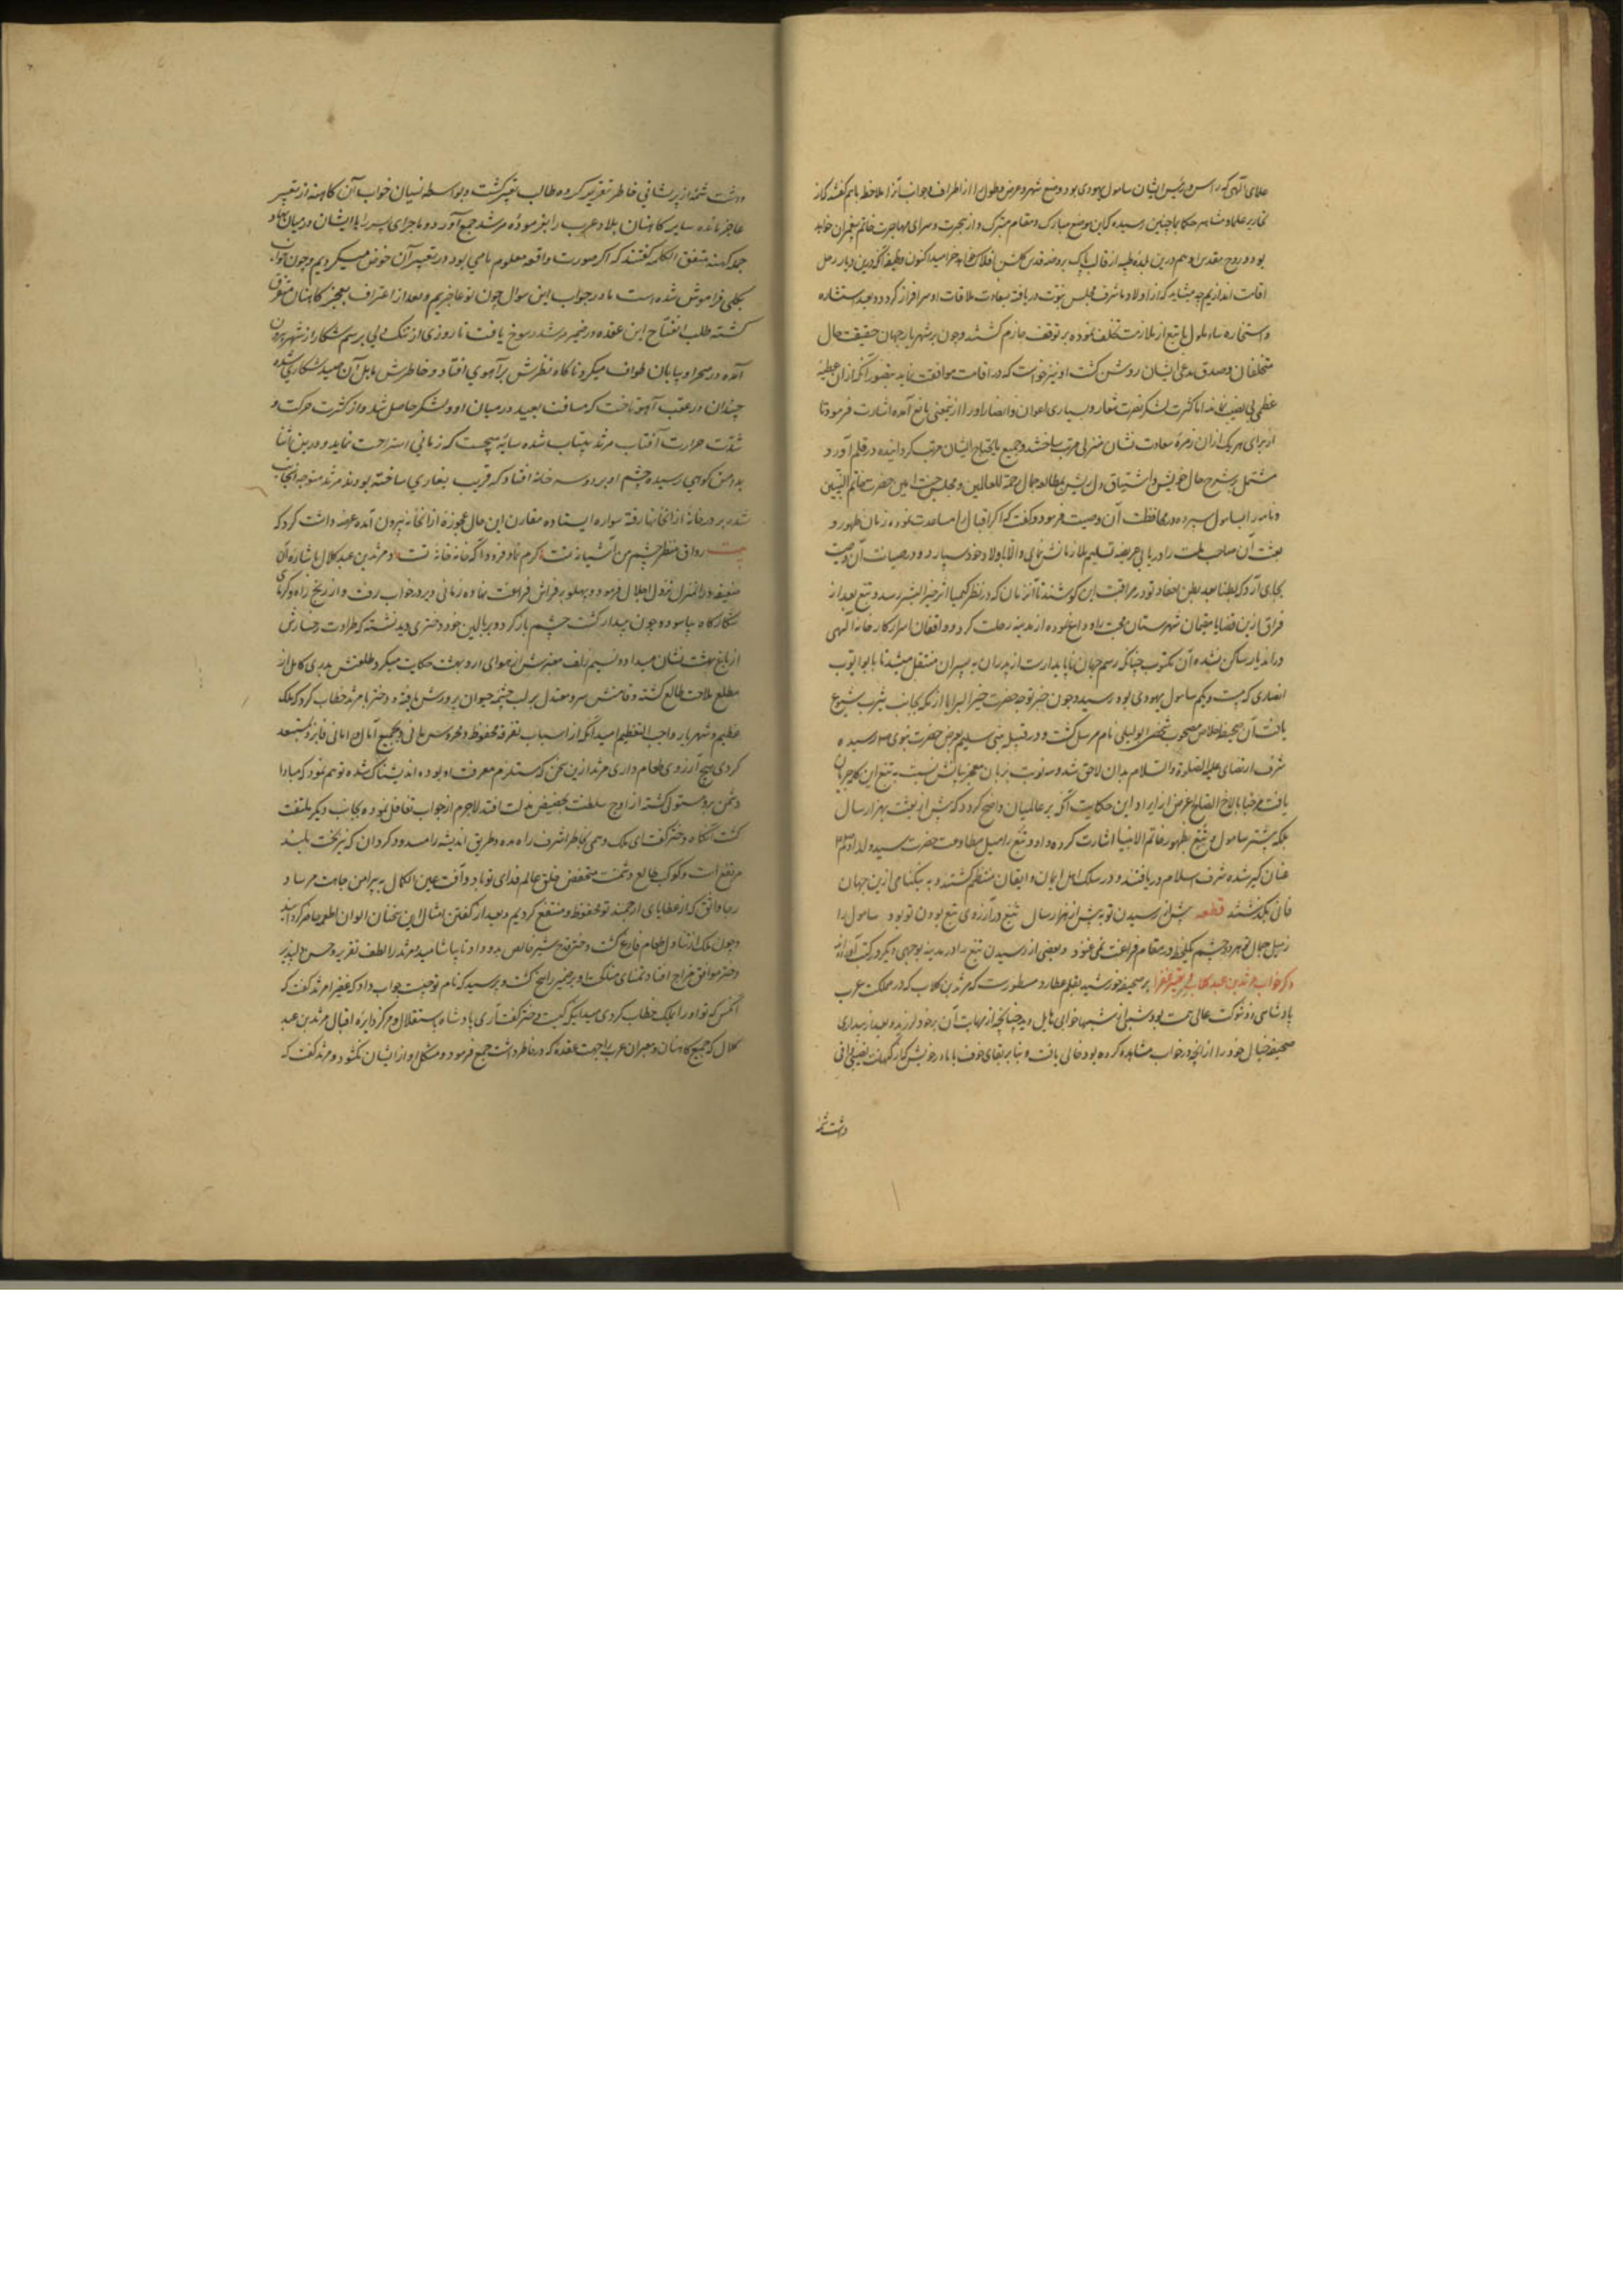 علمای الهی که راس و رئیس ایشان سامول یهودی بود وضع شهر و عرض و طول را از اطراف و جوانب آنرا ملاحظه باهم گفتند که از
علما و مشاهیر حکما بما چنین رسیده که این موضع مبارک و مقام متبرک دار هجرت و سرای مهاجرت خاتم پیغمبران خواهد
بود و روح مقدس او هم درین بلده طیبه از قالب پاک بروضه قدس خرامید اکنون وظیفه آنکه درین دیار رحل
اقامت اندازیم چه میشاید که از اولاد ما شرف مجلس نبوت دریافته بسعادت ملاقات او سرافراز گردد و بعد استشاره
و استخاره سامول با تبع از ملازمت تخلف نموده بر توقف جازم گشتند و چون بر شهریار جهان حقیقت حال
متخلفان و صدق مدعی ایشان روشن گشت او نیز خواست که در اقامت موافقت نماید
عظمی بی نصیب نماند اما کثرت لشکر نصرت شعار و بسیاری اعوان و انصار او را ازینمعنی مانع آمده اشارت فرمود تا
از برای هر یک از ان زمره سعادت نشان منزلی مرتب ساختند و جمیع مایحتاج ایشان مرتب گردانیده در قلم آورد
مشتمل بر شرح حال خویش و اشتیاق دل ریش بمطالعه جمال رحمة للعالمین و مجلس حضرت خاتم النبیین
و نامه را بسامول سپرده در محافظت آن وصیت فرمود و گفت که اگر اقبال ترا مساعدت نموده زمان ظهور و
بعثت آن صاحب ملت را دریابی عریضه تسلیم ملازمانش نمای و الا باولاد خود سپار و در صیانت آن وصیت
بجای آر و که بطنا بعد بطن احفاد تو در مراقبت این کوشند تا آن زمان که در نظر کیمیا اثر خیر البشر رسد و تبع بعد از
فراق ازین قضایا مقیمان شهرستان محبت را وداع نموده از مدینه رحلت کرد و واقفان اسرار کارخانه الهی
در اندیار ساکن شده آن مکتوب چنانکه رسم جهان ناپایدار است از پدران به پسران منتقل میشد تا بابو ایوب
انصاری که بیست و یکم سامول یهودی بود رسید و چون خبر توجه حضرت خیر البرایا از مکه بجانب یثرب شیوع
یافت آن صحیفه اخلاص مصحوب شخصی ابولیلی نام مرسل گشت و در قبیله بنی سلیم بعرض حضرت نبوی رسیده
شرف ارتضای علیه الصلوة و السلام بدان لاحق شد و سه نوبت بزبان معجز بیانش نسبت به تبع این کلمه جریان
یافت مرحبا بالاخ الصالح غرض از ایراد این حکایت آنکه بر عالمیان واضح گردد که پیش از بعثت بهزار سال
بلکه بیشتر سامول و تبع بظهور خاتم الانبیا اشارت کرده و تبع را میل مطاوعت حضرت سید ولد آدم
عنان گیر شده شرف اسلام دریافتند و در سلک اهل ایمان و ایقان منتظم گشتند و به نیکنامی ازین جهان
فانی بگذشتند قطعه پیش از رسیدن تو به پیش از هزار سال تبع در آرزوی تبع بودن تو بود سامول را
ز میل جمال تو هر دو چشم یکلحظه در مقام فراغت نمی غنود و بعضی از رسیدن تبع را در مدینه بوجهی دیگر در کتب آورده‌اند
ذکر خواب مرثد بن عبد کلال بر صحیفه خورشید بقلم عطارد مسطورست که مرثد بن کلاب که در مملکت عرب
پادشاهی ذو شوکت عالی همت بود شبی از شبها خوابی هایل دید چنانچه از مهابت آن برخود لرزید و بعد از بیداری
صحیفه خیال خود را از آنچه در خواب مشاهده کرده بود خالی یافت و بنا بر بقای خوف با مادر خویش که از کهانت نصیبی وافی
داشت شمه
داشت شمه از پریشانی خاطر تقریر کرده طالب تعبیر گشت و بواسطه نسیان خواب آن کاهنه از تعبیر
عاجز مانده سایر کاهنان بلاد عرب را بفرموده مرثد جمع آورد و ماجرای پسر را با ایشان در میان نهاد
جمله کهنه متفق الکلمه گفتند که اگر صورت واقعه معلوم ما می بود در تعبیر آن خوض میکردیم و چون خواب
بکلی فراموش شده است ما در جواب این سوال چون تو عاجزیم و بعد از اعتراف بعجز کاهنان متفرق
گشته طلب انفتاح این عقده در ضمیر مرثد رسوخ یافت تا روزی از تنک دلی برسم شکار از شهر بیرون
آمده در صحرا و بیابان طواف میکرد ناگاه نظرش بر آهوی افتاد و خاطرش مایل آن صید شکاری شده
چندان در عقب آهو تاخت که مسافت بعید در میان او و لشکر حاصل شد و از کثرت حرکت و
شدت حرارت آفتاب مرثد بیتاب شده سایه میجست که زمانی استراحت نماید و درین اثنا
بدامن کوهی رسیده چشم او بر دو سه خانه افتاد که قریب بغاری ساخته بودند مرثد متوجه آنجانب
شده بر در خانه از آنخانها رفته سواره ایستاده مقارن این حال عجوزه از آنخانه بیرون آمده عرضه داشت کرد که
بیت رواق منظر چشم من آشیانه تست کرم نما و فرود آ که خانه خانه تست و مرثد بن عبد کلال باشاره آن
ضعیفه در آنمنزل نزول اجلال فرمود و پهلو بر فراش فراغت نهاده زمانی دیر در خواب رفت و از رنج راه و گرمای
شکارگاه بیاسود و چون بیدار گشت چشم باز کرد و بر بالین خود دختری دید نشسته که طراوت رخسارش
از باغ بهشت نشان میداد و نسیم زلف معنبرش از هوای اردیبهشت حکایت میکرد طلعتش بدری کامل از
مطلع ملاحت طالع گشته و قامتش سرو معتدل بر لب چشمه حیوان پرورش یافته و دختر با مرثد خطاب کرد که ملک
عظیم و شهریار واجب التعظیم امید آنکه از اسباب تفرقه محفوظ و محروس مانی و بجمیع آمال و امانی فایز و مستسعد
گردی هیچ آرزوی طعام داری مرثد ازین سخن که مستلزم معرفت او بوده اندیشناک شده توهم نمود که مبادا
دشمن برو مستولی گشته از اوج سلطنت بحضیض مذلت افتد لاجرم از جواب تغافل نموده بجانب دیگر ملتفت
گشت آنگاه دختر گفت ای ملک وهمی بخاطر اشرف راه مده و طریق اندیشه را مسدود گردان که نیز بخت بلند
مرتفع است و کوکب طالع دشمنت منخفض خلق عالم فدای تو باد و آفت عین الکمال به پیرامن جاهت مرساد
رجا واثق که از عطایای ارجمند تو محفوظ و منتفع گردیم و بعد از گفتن امثال این سخنان الوان اطعمه حاضر گردانید
و چون ملک از تناول طعام فارغ گشت دختر قدح شیر خالص بدو داد تا بیاشامید مرثد را لطف تقریر و حسن دلپذیر
دختر موافق مزاج افتاد تمنای مناکحت او بر ضمیر راسخ گشت و پرسید که نام تو چیست جواب داد که عفیرا مرثد گفت که
آنکس که تو او را بملک خطاب کردی میدانی که کیست دختر گفت آری پادشاه باستقلال و مرکز دایره اقبال مرثد بن عبد
کلال که جمیع کاهنان و معبران عرب را جهت عقده که در خاطر داشت جمع فرمود و مشکل او از ایشان نکشود و مرثد گفت که